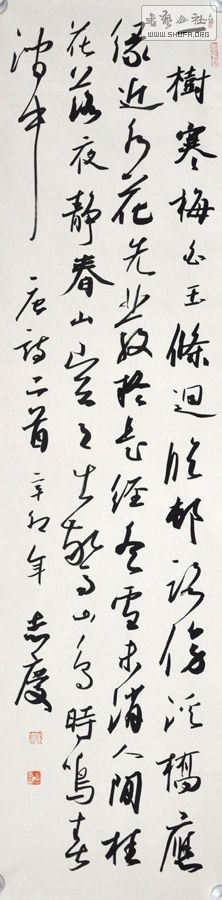 書藝公社
WWW.SHUFA.ORG
一樹寒梅白玉條迴臨邨路傍溪橋應
緣近水花先發疑是經冬雪未消人間桂
花落夜靜春山空月出驚山鳥時鳴春
澗中
唐詩二首 辛卯年 志慶